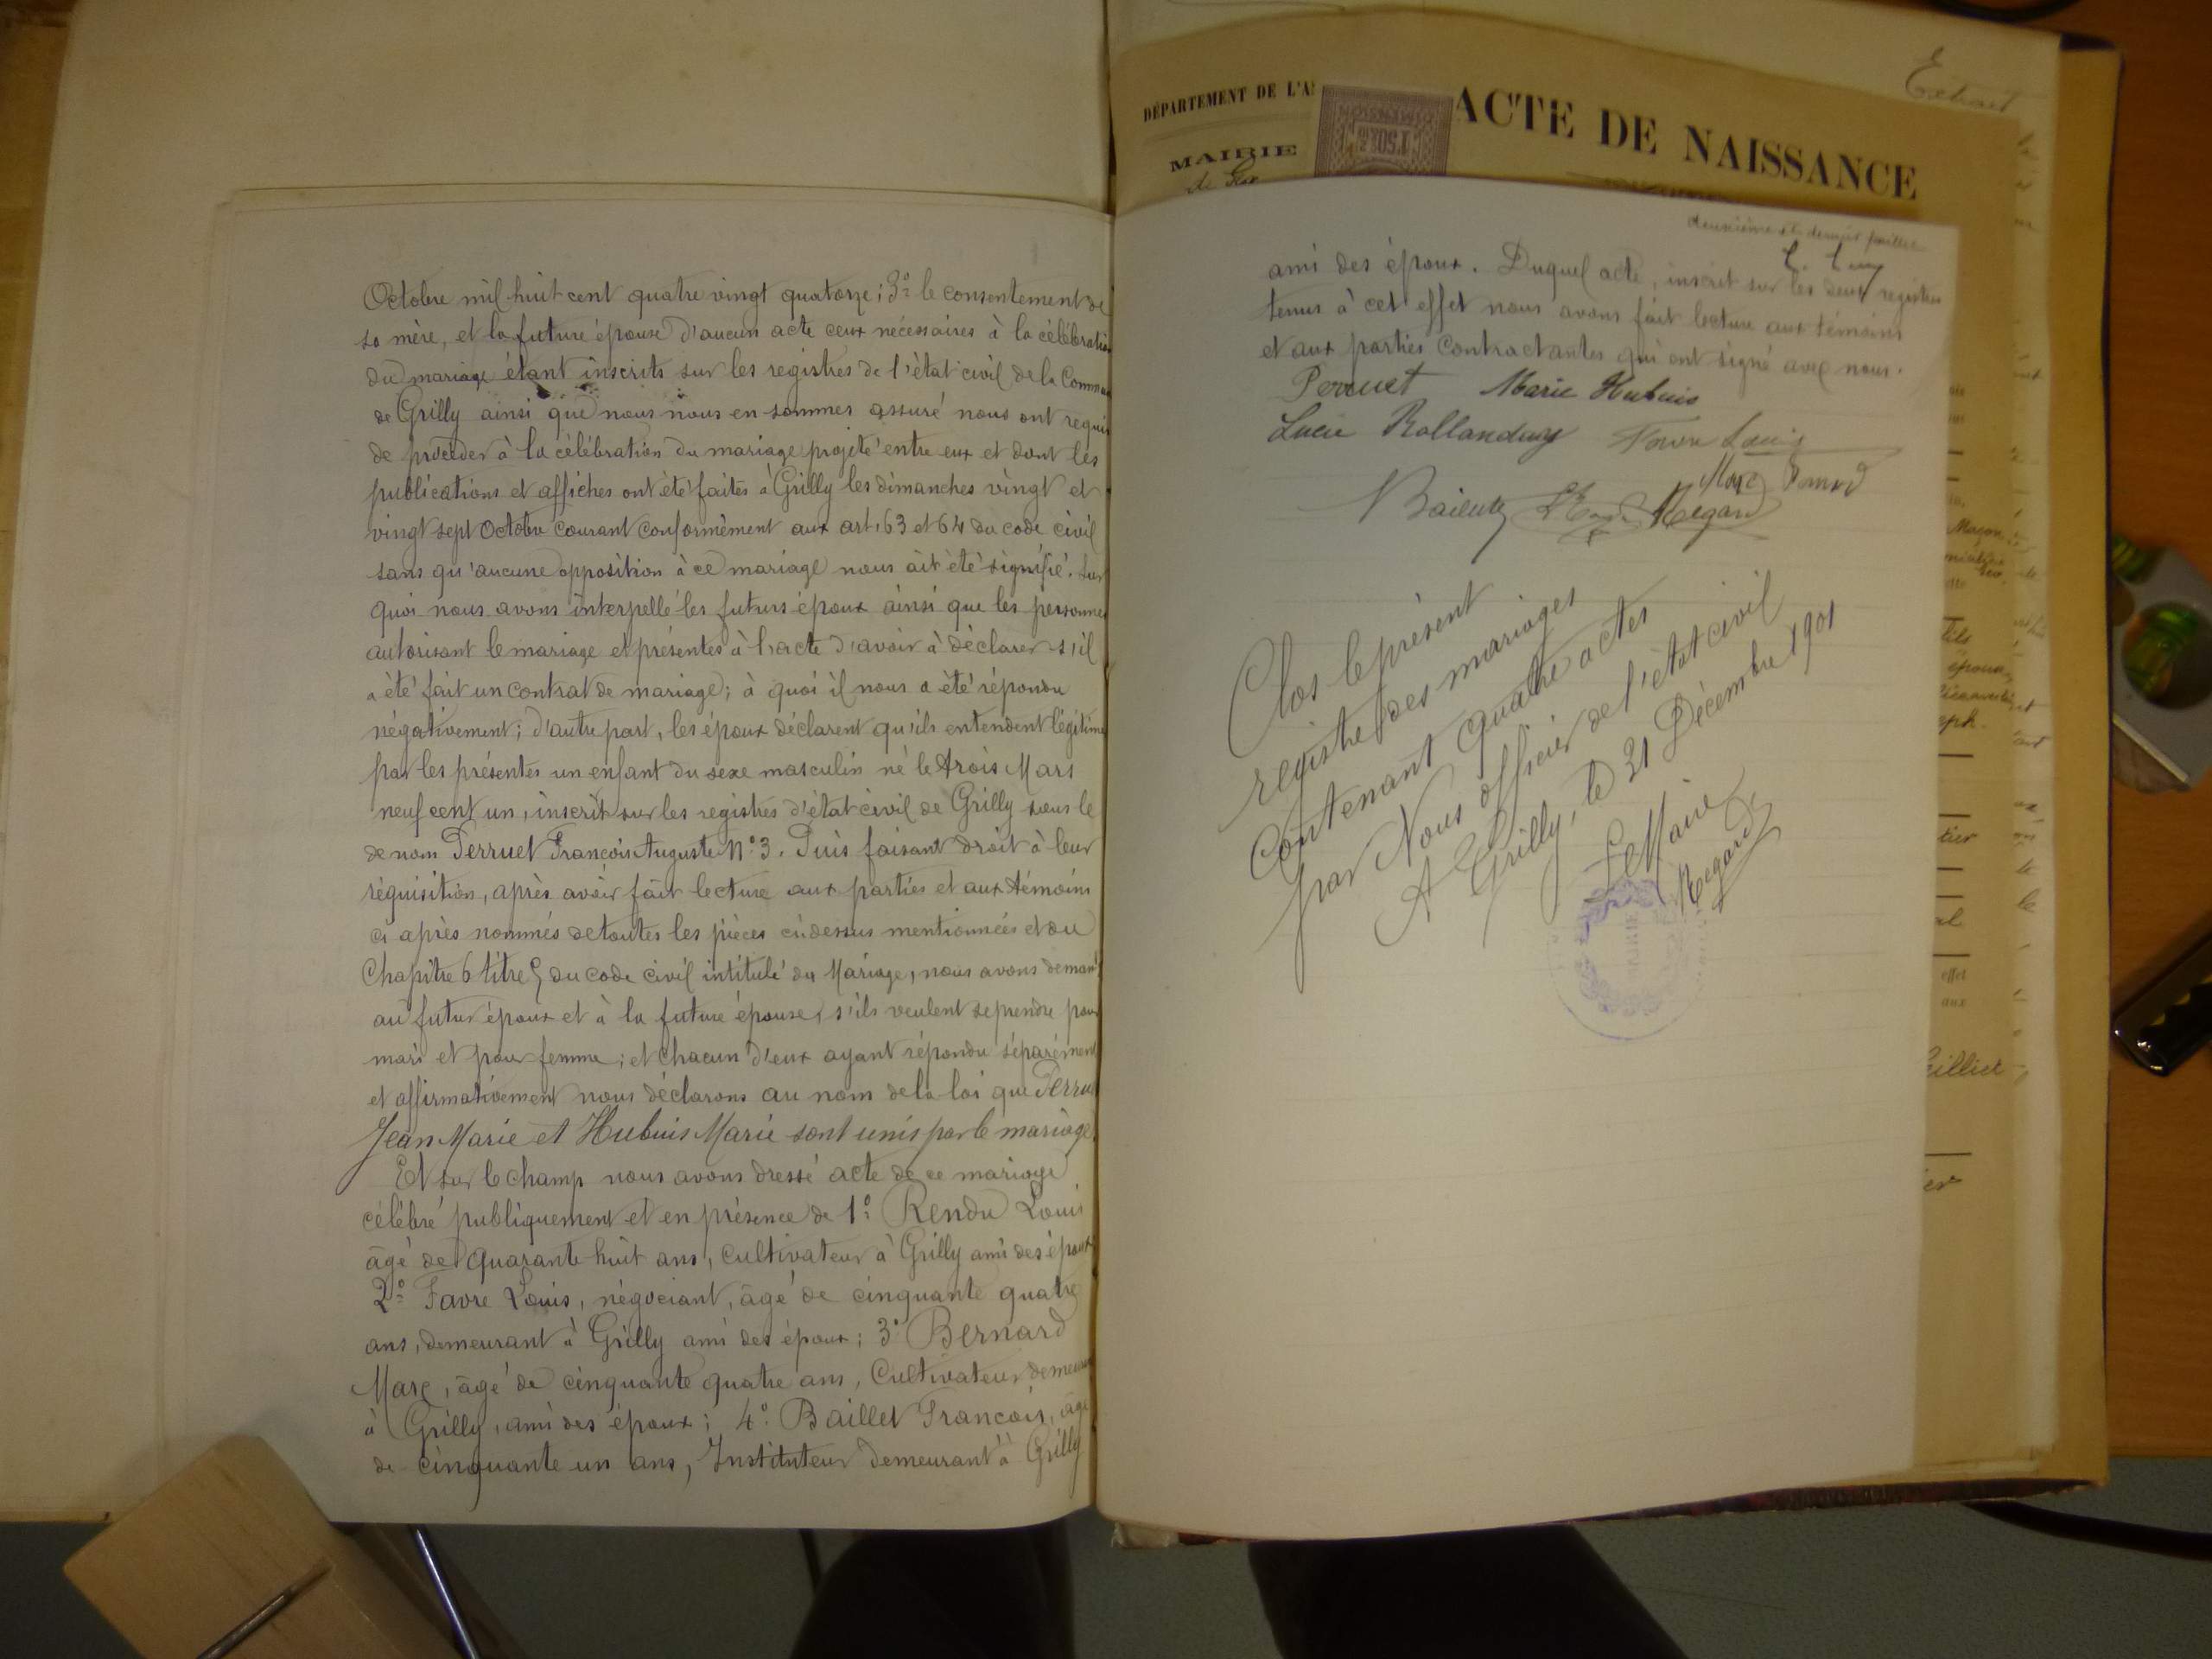 Octobre mil huit cent quatre vingt quatorze ; 3º le consentement de
sa mère, et la future épouse d'aucun acte ceux nécessaires à la célébration
du mariage étant inscrits sur les registres de l'état civil de la Commune
de Grilly ainsi que nous nous en sommes assuré nous ont requis
de procéder à la célébration du mariage projeté entre eux et dont les
publications et affiches ont été faites à Grilly les dimanches vingt et
vingt sept Octobre Courant Conformément aux art. 63 et 64 du code civil
sans qu'aucune opposition à ce mariage nous ait été signifié. Sur
quoi nous avons interpellé les futurs époux ainsi que les personnes
autorisant le mariage et présentes à l'acte d'avoir à déclarer s'il
a été fait un contrat de mariage ; à quoi il nous a été répondu
négativement ; d'autre part, les époux déclarent qu'ils entendent légitimer
par les présentes un enfant du sexe masculin né le trois Mars
neuf cent un, inscrit sur les registres d'état civil de Grilly sous le
de nom Perruet François Auguste Nº 3. Puis faisant droit à leur
réquisition, après avoir fait lecture aux parties et aux témoins
ci après nommés de toutes les pièces ci-dessus mentionnées et du
Chapitre 6 titre 5 du code civil intitulé du Mariage, nous avons demandé
au futur époux et à la future épouse, s'ils veulent se prendre pour
mari et pour femme ; et chacun d'eux ayant répondu séparément
et affirmativement nous déclarons au nom de la loi que Perruet
Jean Marie et Hubuis Marie sont unis par le mariage.
Et sur le champ nous avons dressé acte de ce mariage
célébré publiquement et en présence de 1º Rendu Louis
âgé de quarante huit ans, Cultivateur à Grilly ami des époux
2º Favre Louis, négociant, âgé de cinquante quatre
ans, demeurant à Grilly ami des époux ; 3º Bernard
Marc, âgé de cinquante quatre ans, Cultivateur demeurant
à Grilly, ami des époux ; 4º Baillet François, âgé
de cinquante un ans, Instituteur demeurant à Grilly
Extrait
DÉPARTEMENT DE L'A
ACTE DE NAISSANCE
MAIRIE
de Gex
deuxième et dernier feuillet
ami des époux. Duquel acte, inscrit sur les deux registres
tenus à cet effet nous avons fait lecture aux témoins
et aux parties Contractantes qui ont signé avec nous.
Perruet Marie Hubuis
Lucie Favre Louis
Marc
Regard
Clos le présent
registre des mariages
Contenant quatre actes
par Nous officier de l'état civil
A Grilly, le 31 Décembre 1901
Le Maire
Regard
Maçon
épouse
effet
aux